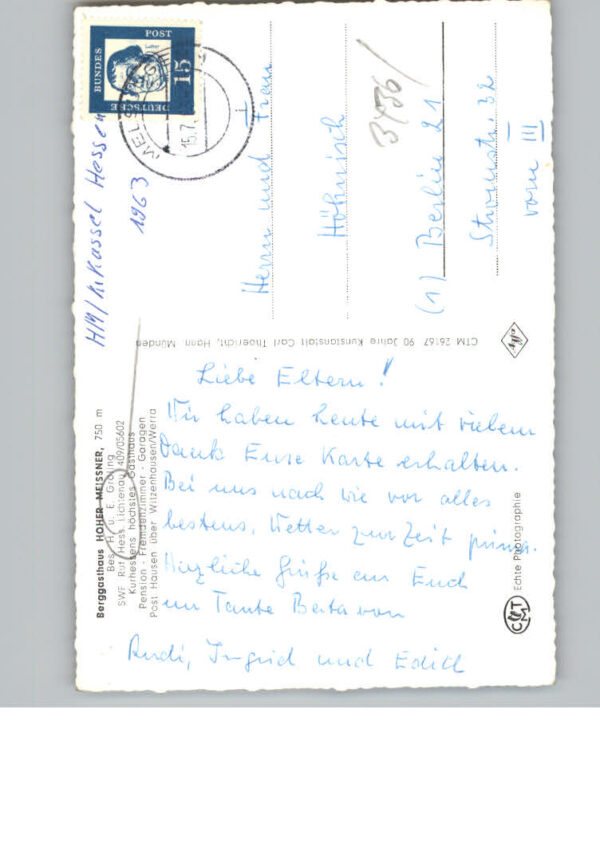 Liebe Eltern!
Wir haben heute mit vielem
Dank Eure Karte erhalten.
Bei uns nach wie vor alles
bestens. Wetter zur Zeit prima.
Herzliche Grüße an Euch
un Tante Berta von
Rudi, Ingrid und Edith
Herrn und Frau
Höhnisch
(1) Berlin 21
Stromstr. 32
vorn III
3436/
DEUTSCHE
BUNDES
POST
15
Luther
MELSUNGEN
15.7.
HM/bKassel Hessen
1963
Berggasthaus HOHER MEISSNER, 750 m
Bes. H. u. E. Gröling
SWF Ruf Hess. Lichtenau 409/05602
Kurhessens höchstes Gasthaus
Pension · Fremdenzimmer · Garagen
Post Hausen über Witzenhausen/Werra
CTM 26167 90 Jahre Kunstanstalt Carl Thoericht, Hann. Münden
Echte Photographie
CTM